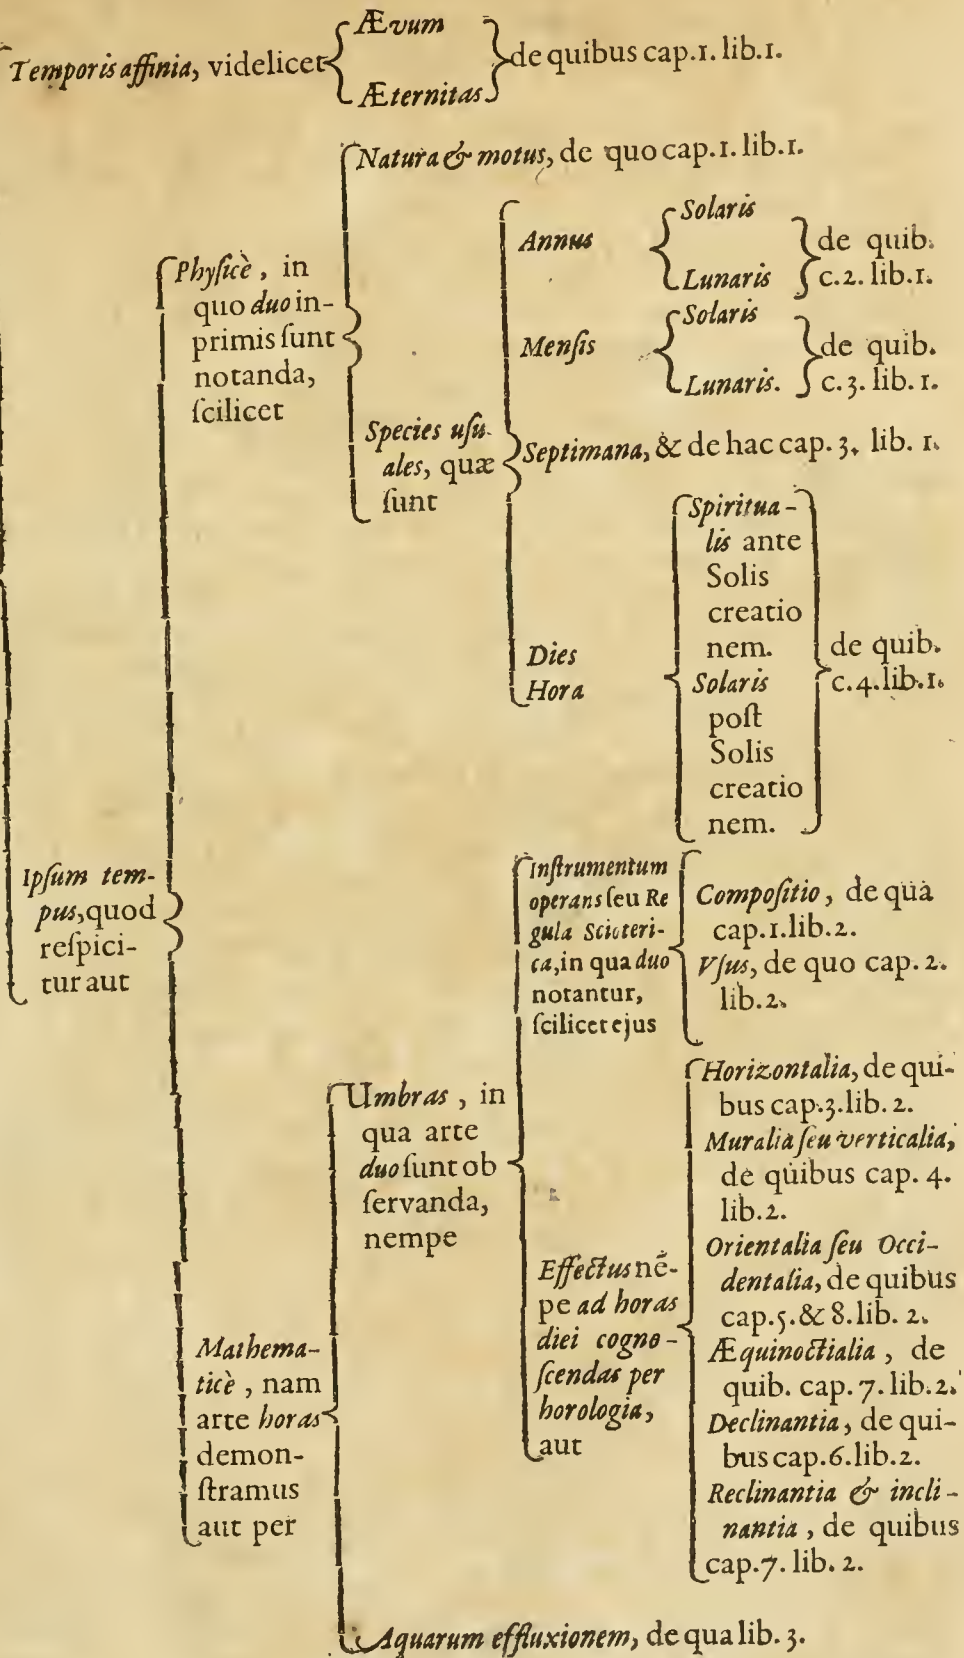 Temporis affinia, videlicet
Ævum
Æternitas
de quibus cap.1. lib.1.
Ipſum tem-
pus, quod
reſpici-
tur aut
Phyſicè, in
quo duo in-
primis ſunt
notanda,
ſcilicet
Natura & motus, de quo cap.1. lib.1.
Species uſu-
ales, quæ
ſunt
Annus
Solaris
Lunaris
de quib.
c.2. lib.1.
Menſis
Solaris
Lunaris.
de quib.
c.3. lib.1.
Septimana, & de hac cap.3. lib. 1.
Dies
Hora
Spiritua-
lis ante
Solis
creatio
nem.
Solaris
poſt
Solis
creatio
nem.
de quib.
c.4.lib.1.
Mathema-
ticè, nam
arte horas
demon-
ſtramus
aut per
Umbras, in
qua arte
duo ſunt ob
ſervanda,
nempe
Inſtrumentum
operans ſeu Re
gula Scioteri-
ca, in qua duo
notantur,
ſcilicet ejus
Compoſitio, de quà
cap.1.lib.2.
Vſus, de quo cap.2.
lib.2.
Effectus nē-
pe ad horas
diei cogno-
ſcendas per
horologia,
aut
Horizontalia, de qui-
bus cap.3.lib.2.
Muralia ſeu verticalia,
de quibus cap. 4.
lib.2.
Orientalia ſeu Occi-
dentalia, de quibus
cap.5.& 8.lib. 2.
Æquinoctialia, de
quib. cap. 7. lib.2.
Declinantia, de qui-
bus cap.6.lib.2.
Reclinantia & incli-
nantia, de quibus
cap.7. lib. 2.
Aquarum effluxionem, de qua lib. 3.